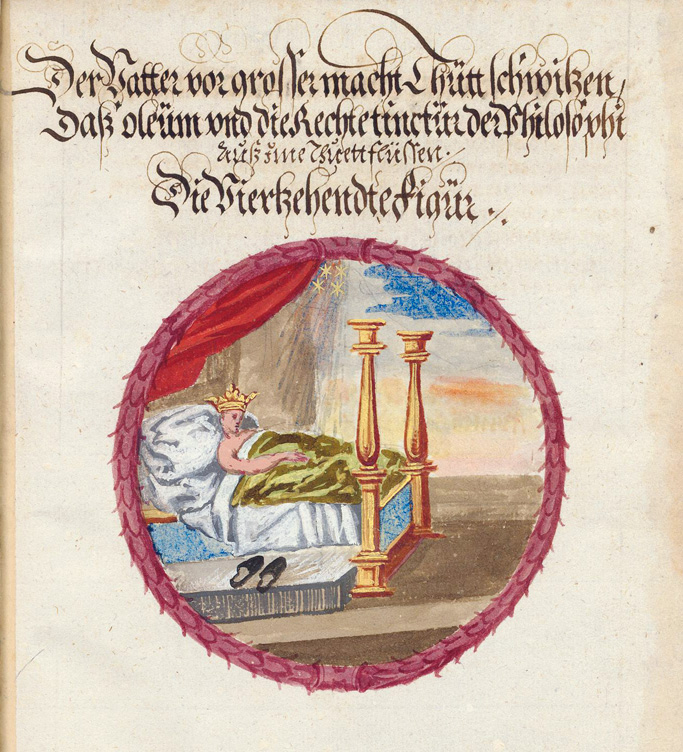 Der Vatter vor grosser macht Thutt schwitzen,
Daß oleum vnd die Rechte tinctur der Philosophi
Auß ime Thuett flüssen.
Die Viertzehendte Figur.